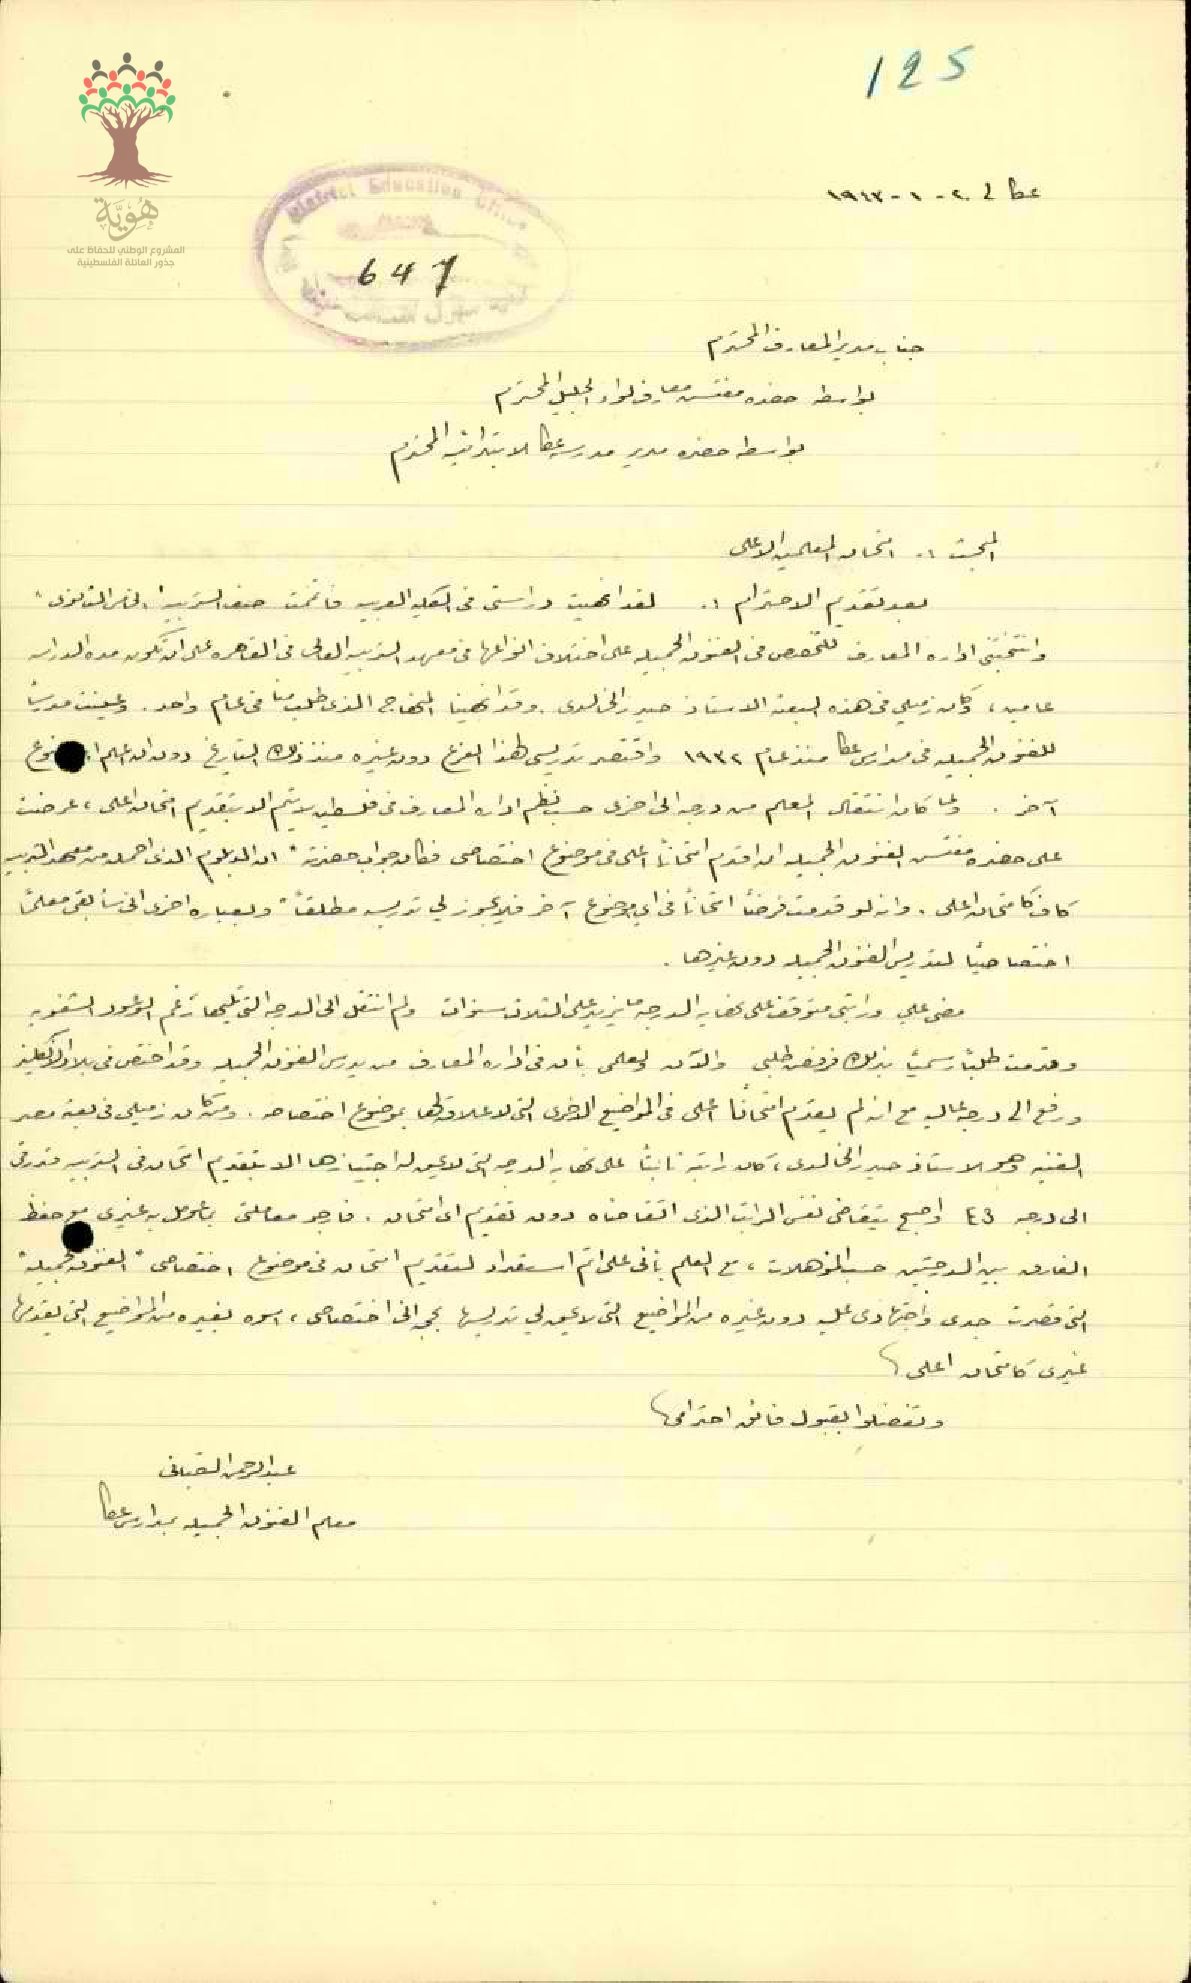 125
عكا في ٢٠ - ١ - ١٩٤٣
هُوِيَّة
المشروع الوطني للحفاظ على
جذور العائلة الفلسطينية
District Education Office
647
جناب مدير المعارف المحترم
بواسطة حضرة مفتش معارف لواء الجليل المحترم
بواسطة حضرة مدير مدرسة عكا الابتدائية المحترم
المبحث :. امتحان المعلمين الاعلى
بعد تقديم الاحترام :. لقد انهيت دراستي في الكلية العربية فاتممت صف التربية " الثانوي "
وانتخبتني ادارة المعارف للتخصص في الفنون الجميلة على اختلاف انواعها في معهد التربية العالي في القاهرة على ان تكون مدة الدراسة
عامين ، وكان زميلي في هذه البعثة الاستاذ حيدر الخالدي . وقد انهينا المنهاج الذي طلب منا في عام واحد . وعينت مدرساً
للفنون الجميلة في مدارس عكا منذ عام ١٩٣٢ واقتصر تدريسي لهذا الفرع دون غيره منذ ذلك التاريخ دون ان اعلم اي موضوع
آخر . ولما كان انتقال المعلم من درجة الى اخرى حسب نظم ادارة المعارف في فلسطين لا يتم الا بتقديم امتحان اعلى ، عرضت
على حضرة مفتش الفنون الجميلة ان اقدم امتحاناً اعلى في موضوع اختصاصي فكان جواب حضرته " ان الدبلوم الذي احمله من معهد التربية
كاف كامتحان اعلى . وانه لو قدمت فرضاً امتحاناً في اي موضوع آخر فلا يجوز لي تدريسه مطلقاً " وبعبارة اخرى اني سأبقى معلماً
اختصاصياً لتدريس الفنون الجميلة دون غيرها .
مضى علي وراتبي متوقف على نهاية الدرجة ما يزيد على الثلاث سنوات ولم انتقل الى الدرجة التي تليها رغم الوعود الشفوية
وقدمت طلباً رسمياً بذلك فرفض طلبي والآن ولعلمي بأن في ادارة المعارف من يدرس الفنون الجميلة وقد اختص في بلاد الانكليز
ورفع الى درجة عالية مع انه لم يقدم امتحاناً اعلى في المواضيع الاخرى التي لا علاقة لها بموضوع اختصاصه . وقد كان زميلي في بعثة مصر
الفنية وهو الاستاذ حيدر الخالدي ، كان راتبه ثابتاً على نهاية الدرجة التي لا يمكن له اجتيازها الا بتقديم امتحان في التربية فترقى
الى درجة واصبح يتقاضى نفس الراتب الذي اتقاضاه دون تقديم اي امتحان . فارجو معاملتي بما عومل به غيري مع حفظ
الفارق بين الدرجتين حسب المؤهلات ، مع العلم بأني على اتم استعداد لتقديم امتحان في موضوع اختصاصي " الفنون الجميلة "
التي قصرت جهدي واجتهادي عليه دون غيره من المواضيع التي لا يمكن لي تدريسها بحجة اني اختصاصي ، اسوة بغيره من المواضيع التي يقدمها
غيري كامتحان اعلى
وتفضلوا بقبول فائق احترامي
عبد الرحمن
معلم الفنون الجميلة بمدارس عكا